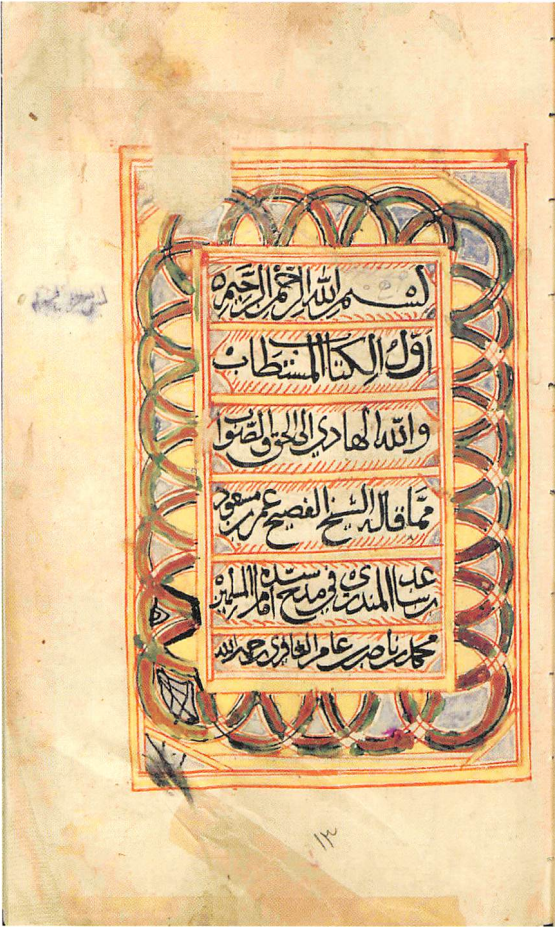 بسم الله الرحمن الرحيم
اول الكتاب المستطاب
والله الهادي الى الحق والصواب
مما قاله الشيخ الفصيح عمر بن مسعود
بن ساعد المنذري في مدح سيده امام المسلمين
محمد بن ناصر بن عامر الغافري رحمه الله
١٣